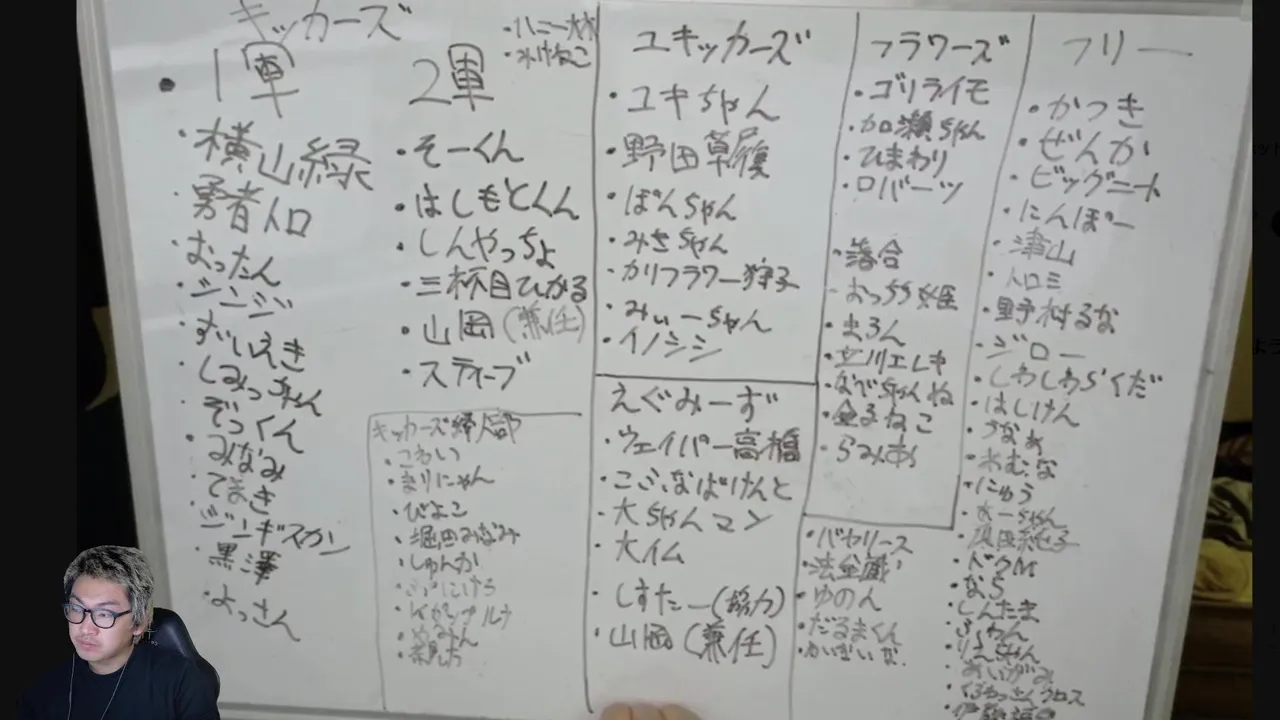 キッカーズ
1軍
・横山緑
・勇者トロ
・おったん
・ジンジン
・ずいえき
・しみっちゃん
・ぞっくん
・みなみ
・てまき
・ジンギスカン
・黒澤
・よっさん
2軍
・そーくん
・はしもとくん
・しんやっちょ
・三杯目ひかる
・山岡(兼任)
・スティーブ
キッカーズ婦人部
・こわい
・まりにゃん
・ぴよこ
・堀田みなみ
・しゅんか
ユキッカーズ
・ユキちゃん
・野田草履
・ぽんちゃん
・みさちゃん
・カリフラワー狩子
・みぃーちゃん
・イノシシ
えぐみーず
・ウェイパー高橋
・こぶなばけんと
・大ちゃんマン
・大イム
・しすたー(協力)
・山岡(兼任)
フラワーズ
・ゴリライモ
・加瀬ちゃん
・ひまわり
・ロバーツ
・落合
・おっちゃ姫
・まろん
・立川エレキ
・なでちゃんね
・金るねこ
・らみあ
・バヤリース
・法金蔵
・ゆのん
・だるまくん
フリー
・かつき
・ぜんか
・ビッグニート
・にんぽー
・津山
・トロミ
・野村るな
・ジロー
・しわしわらくだ
・はしけん
・うなぁ
・ねむ:な
・にゅう
・ドクM
・なら
・しんたま